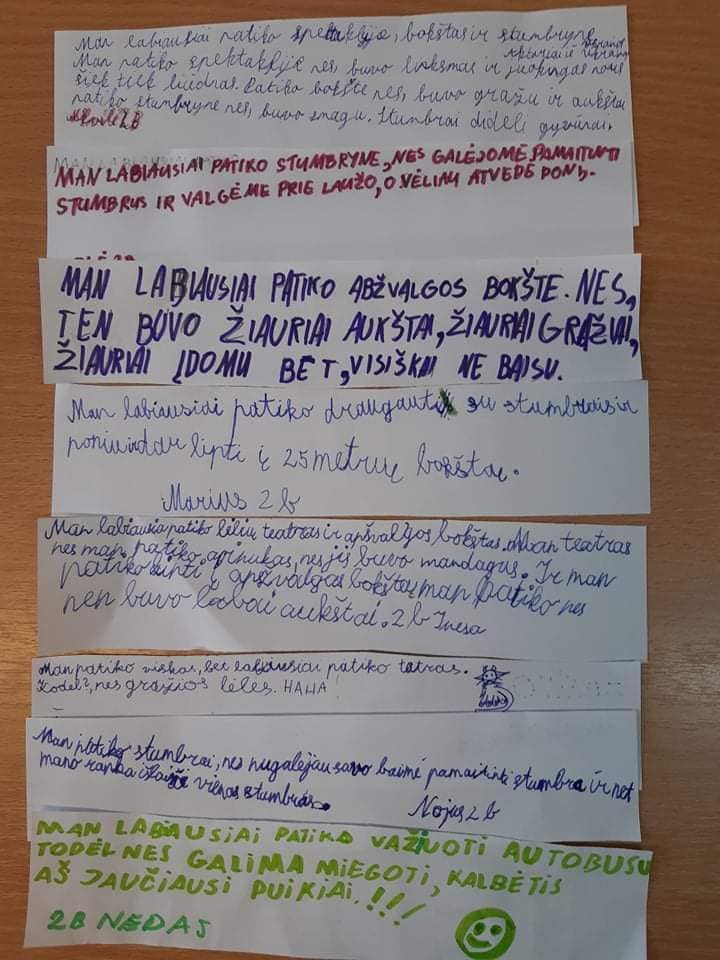 Man labiausiai patiko spektaklyje, bokštas ir stumbryne.
Man patiko spektaklyje nes, buvo linksmas ir juokingas nors
šiek tiek liūdnas. Patiko bokšte nes, buvo gražu ir aukštai
patiko stumbryne nes, buvo smagu. Stumbrai dideli gyvūnai.
2B
MAN LABIAUSIAI PATIKO STUMBRYNE, NES GALĖJOME PAMAITINTI
STUMBRUS IR VALGĖME PRIE LAUŽO, O VĖLIAU ATVEDĖ PONĮ.
MAN LABIAUSIAI PATIKO ABŽVALGOS BOKŠTE. NES,
TEN BUVO ŽIAURIAI AUKŠTAI, ŽIAURIAI GRAŽIAI,
ŽIAURIAI ĮDOMU BET, VISIŠKAI NE BAISU.
Man labiausiai patiko draugauti su stumbrais ir
poniu ir dar lipti į 25 metrų bokštą.
Marius 2b
Man labiausia patiko lėlių teatras ir apšvalgos bokštas. Man teatras
nes man patiko apinukas, nes jis buvo mandagus. Ir man
patiko lipti į apžvalgas bokštas man patiko nes
nen buvo labai aukštai. 2b Inesa
Man patiko viskas, bet labjausiai patiko tetras.
Kodel?, nes gražios lėlės. HAHA!
Man patiko stumbrai, nes nugalėjau savo baimę pamaitinti stumbra ir net
mano ranka vienas stumbras.
Nojus 2b
MAN LABIAUSIAI PATIKO VAŽIUOTI AUTOBUSU
TODĖL NES GALIMA MIEGOTI, KALBĖTIS
AŠ JAUČIAUSI PUIKIAI.!!!
2B NEDAS